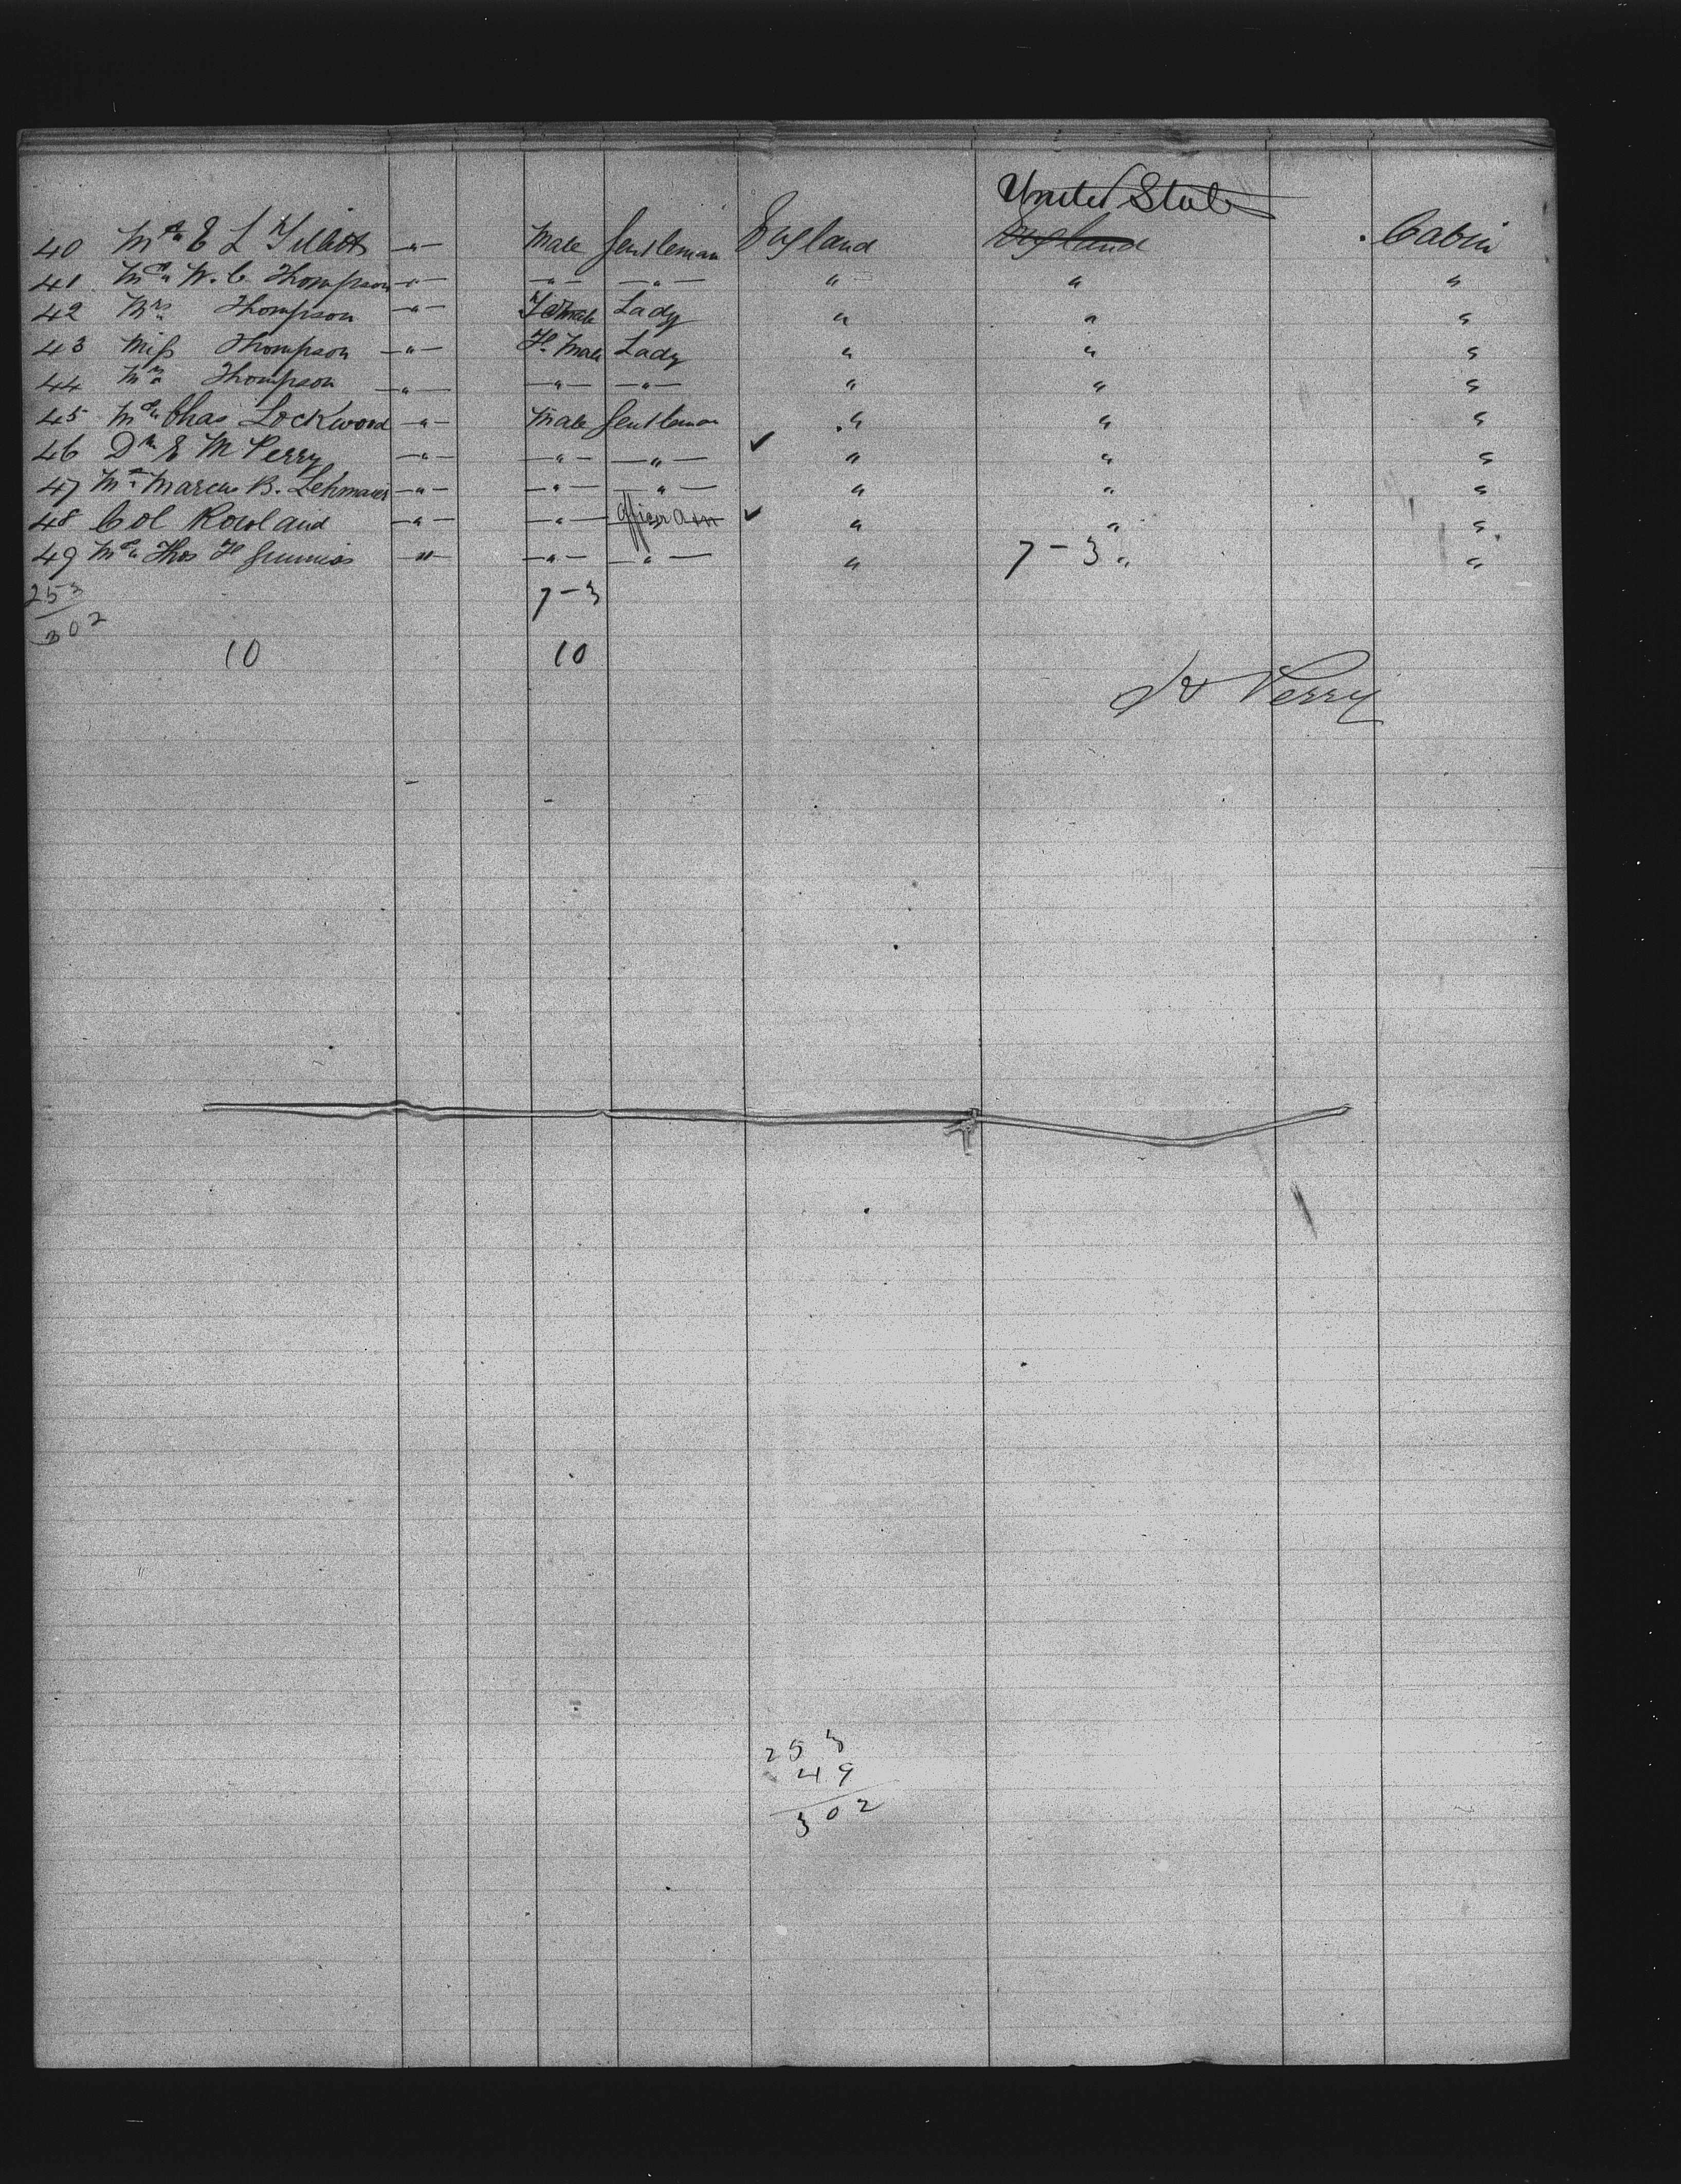 United States
40 Mr E L Tillitts -"- Male Gentleman England England Cabin
41 Mr W. C. Thompson -"- -"- -"- " " "
42 Mrs Thompson -"- Female Lady " " "
43 Miss Thompson -"- Fe Male Lady " " "
44 Mrs Thompson -"- -"- -"- " " "
45 Mr Chas Lockwood -"- Male Gentleman " " "
46 Dr E M Perry -"- -"- -"- ✓ " " "
47 Mr Marcus B. Lehmaier -"- -"- -"- " " "
48 Col Rowland -"- -"- Officer ✓ " " "
49 Mr Thos F -"- -"- -"- " 7-3 " "
253 7-3
302
10 10
Perry
253
49
302